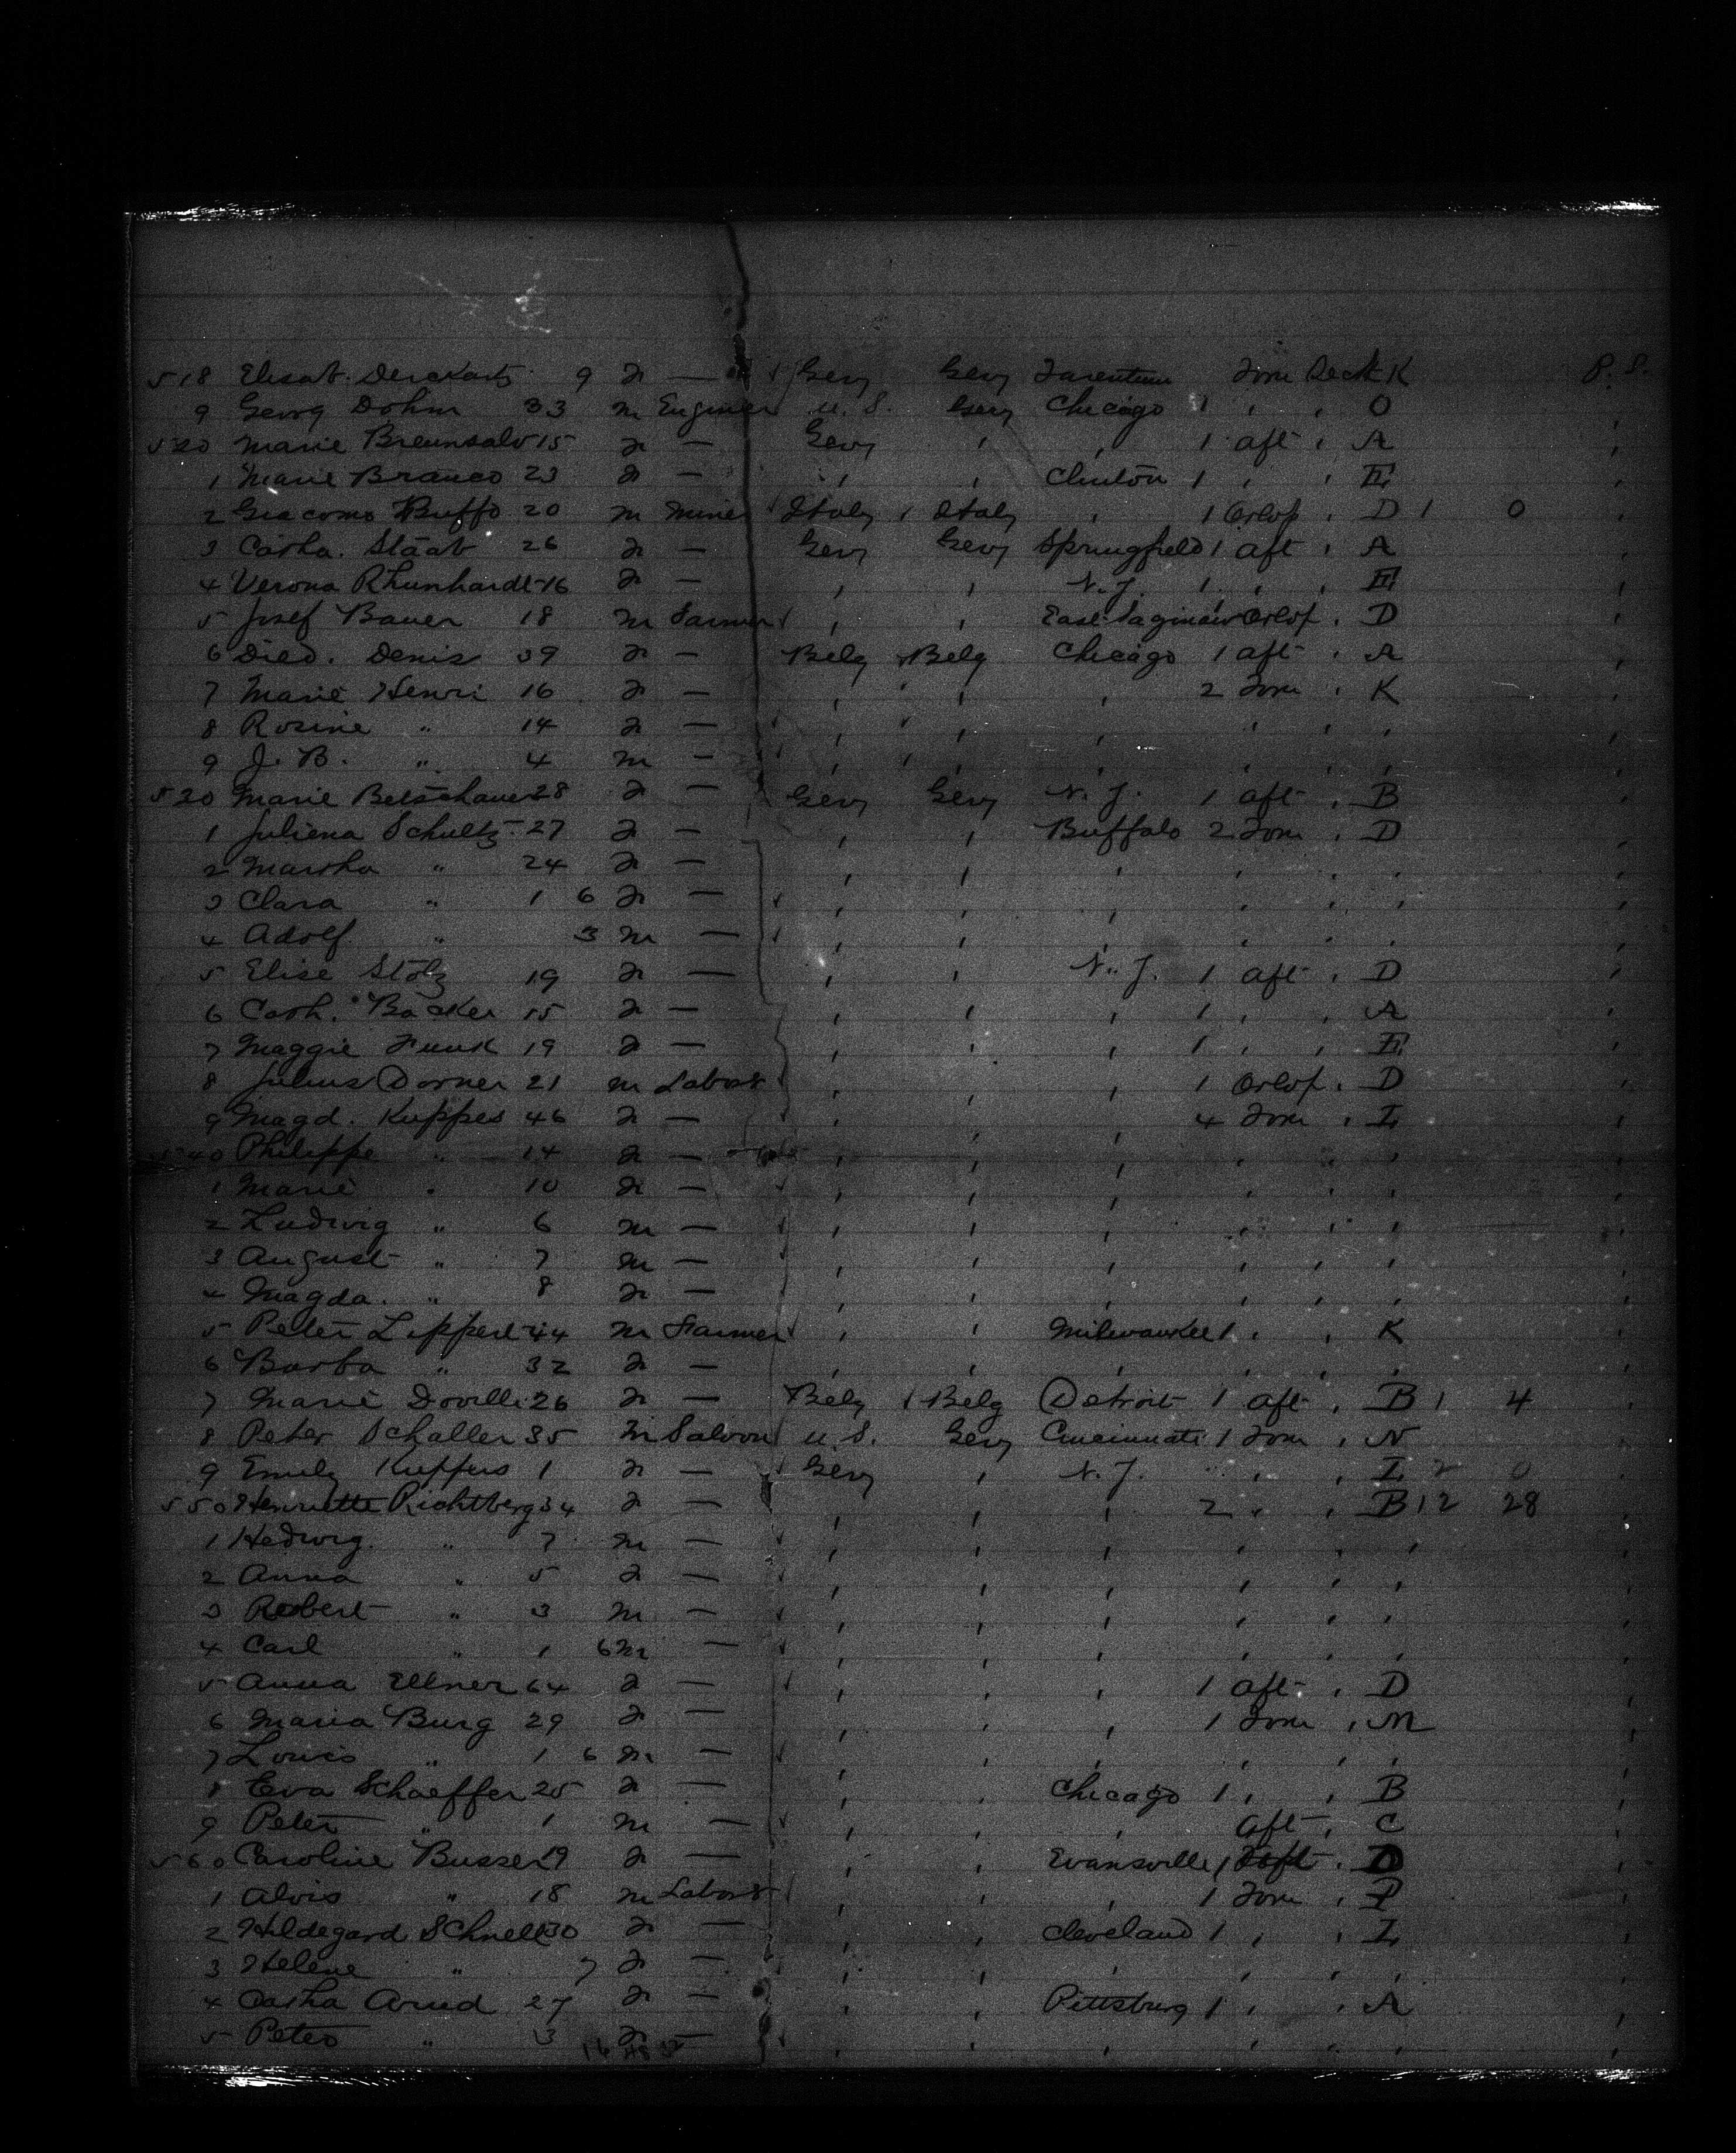 518 Elisab. Derckarts 9 f — Gery Gery Tarentum Fore Deck K P. S.
9 Georg Dohm 33 m Engineer U. S. Gery Chicago 1 " " O "
520 Marie Breunsalv 15 f — Gery " " 1 aft " A "
1 Marie Branco 23 f — " " Clinton 1 " " E "
2 Giacomo Buffo 20 m Miner Italy Italy " 1 Orlop " D 1 0 "
3 Catha. Staab 26 f — Gery Gery Springfield 1 aft " A "
4 Verona Rhunhardt 16 f — " " N. J. 1 " " E "
5 Josef Bauer 18 m Farmer " " East Saginaw Orlop " D "
6 Died. Denis 39 f — Belg Belg Chicago 1 aft " A "
7 Marie Henri 16 f — " " " 2 Fore " K "
8 Rosine " 14 f — " " " " " " "
9 J. B. " 4 m — " " " " " " "
530 Marie Betschauer 28 f — Gery Gery N. J. 1 aft " B "
1 Juliena Schultz 27 f — " " Buffalo 2 Fore " D "
2 Martha " 24 f — " " " " " " "
3 Clara " 1 6 f — " " " " " " "
4 Adolf " 3 m — " " " " " " "
5 Elise Stolz 19 f — " " N. J. 1 aft " D "
6 Cath. Backer 15 f — " " " 1 " " A "
7 Maggie Funk 19 f — " " " 1 " " E "
8 Julius Dorner 21 m Labor " " " 1 Orlop " D "
9 Magd. Kuppes 46 f — " " " 4 Fore " L "
540 Philippe " 14 f — " " " " " " "
1 Marie " 10 f — " " " " " " "
2 Ludwig " 6 m — " " " " " " "
3 August " 7 m — " " " " " " "
4 Magda. " 8 f — " " " " " " "
5 Peter Lippert 44 m Farmer " " Milwaukee 1 " " K "
6 Barba " 32 f — " " " " " " "
7 Marie Doville 26 f — Belg Belg Detroit 1 aft " B 1 4 "
8 Peter Schaller 35 m Saloon U. S. Gery Cincinnati 1 Fore " N "
9 Emily Kuppers 1 f — Gery " N. J. " " L 2 0 "
550 Henriette Richtberg 34 f — " " " 2 " " B 12 28 "
1 Hedwig " 7 m — " " " " " " "
2 Anna " 5 f — " " " " " " "
3 Robert " 3 m — " " " " " " "
4 Carl " 1 6 m — " " " " " " "
5 Anna Ellner 64 f — " " " 1 aft " D "
6 Maria Burg 29 f — " " " 1 Fore " M "
7 Louis " 1 6 m — " " " " " " "
8 Eva Schaeffer 25 f — " " Chicago 1 " " B "
9 Peter " 1 m — " " " aft " C "
560 Caroline Busser 19 f — " " Evansville 1 aft " D "
1 Alois " 18 m Labor " " " 1 Fore " P "
2 Hildegard Schnell 30 f — " " Cleveland 1 " " L "
3 Helene " 7 f — " " " " " " "
4 Catha Arend 27 f — " " Pittsburg 1 " " A "
5 Peter " 3 f — " " " " " " "